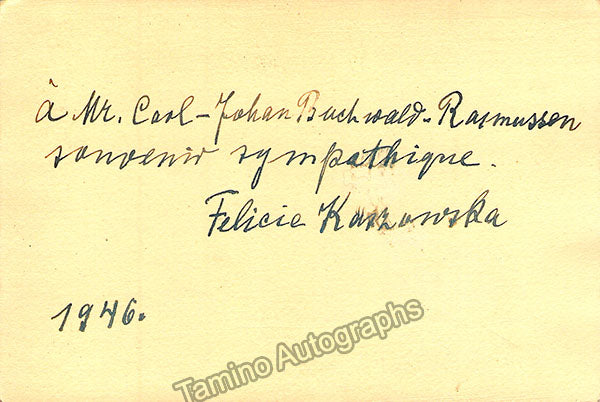 à Mr. Carl-Johan Buchwald-Rasmussen
souvenir sympathique.
Felicie Kaszowska
1946.
Tamino Autographs